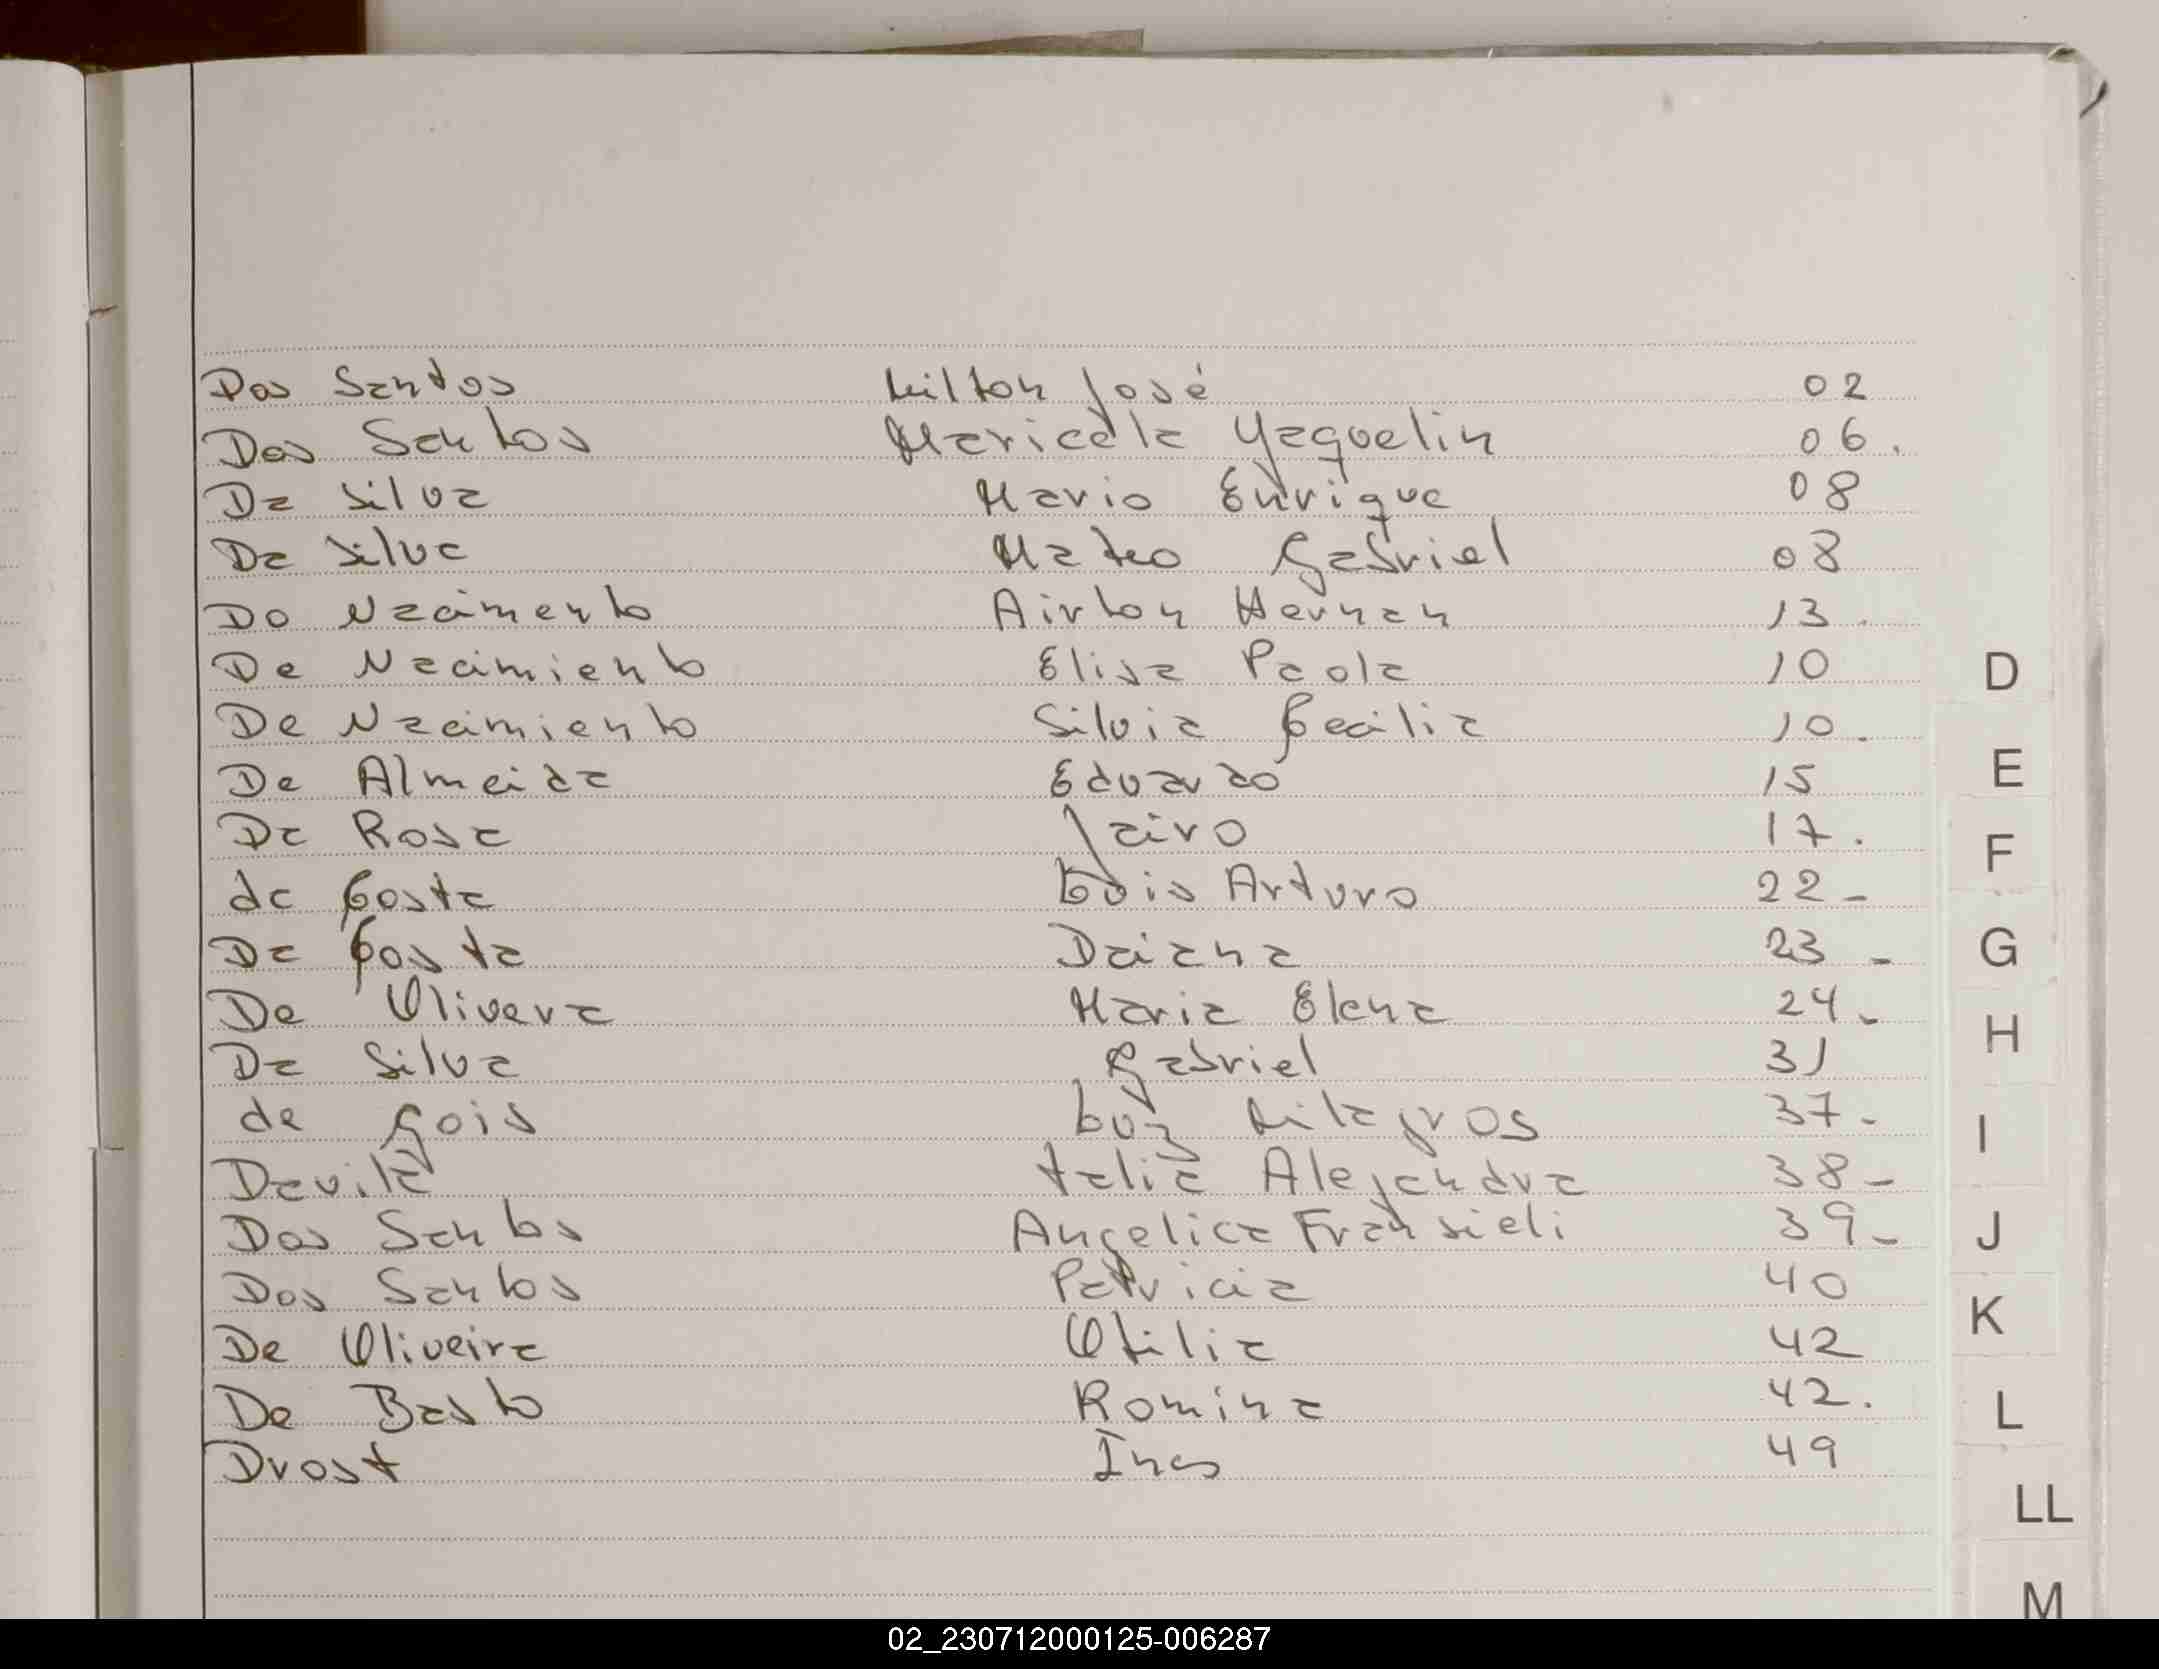 Dos Santos Milton José 02
Dos Santos Maricela Yaquelin 06.
Da Silva Mario Enrique 08
Da Silva Mateo Gabriel 08
Do Nacimento Airton Hernan 13.
De Nacimiento Elisa Paola 10
De Nacimiento Silvia Cecilia 10.
De Almeida Eduardo 15
Da Rosa Jairo 17.
da Costa Luis Arturo 22-
Da Costa Daiana 23-
De Olivera Maria Elena 24-
Da Silva Gabriel 31
de Gois Luz Milagros 37-
Davila Talia Alejandra 38-
Dos Santos Angelica Fransieli 39-
Dos Santos Patricia 40
De Oliveira Otilia 42
De Basto Romina 42.
Drost Ines 49
D
E
F
G
H
I
J
K
L
LL
M
02_230712000125-006287